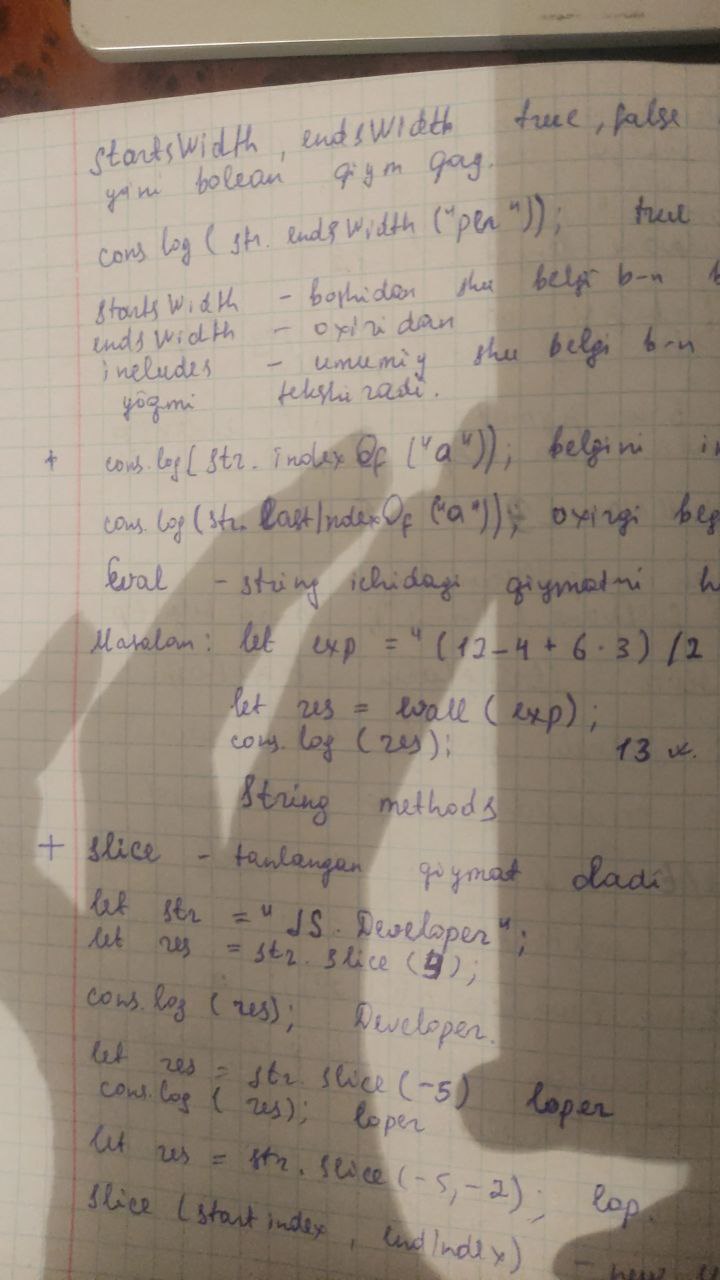 startsWidth, endsWidth true, false
yani bolean qiym qay.
cons log ( str. endsWidth ("per")); true
startsWidth - boshidan shu belgi b-n
endsWidth - oxiridan
includes - umumiy shu belgi b-n
yoqmi tekshiradi.
+ cons.log(str. indexOf ("a")); belgini
cons.log(str. LastIndexOf ("a")); oxirgi
Eval - string ichidagi qiymatni
Masalan: let exp = "(12-4+6·3)/2
let res = evall (exp);
cons. log (res); 13
String methods
+ slice - tanlangan qiymat oladi
let str = "JS. Developer";
let res = str. slice ();
cons.log (res); Developer.
let res = str. slice (-5) loper
cons.log ( res); loper
let res = str. slice (-5,-2); lop.
slice (start index, endIndex)